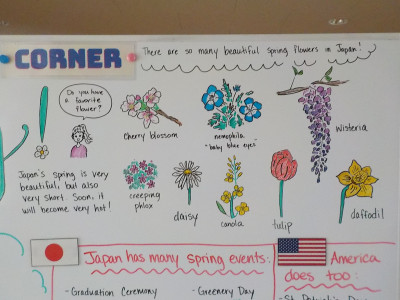 CORNER
There are so many beautiful spring flowers in Japan!
Do you have
a favorite
flower?
cherry blossom
nemophila
"baby blue eyes"
wisteria
Japan's spring is very
beautiful, but also
very short. Soon, it
will become very hot!
creeping
phlox
daisy
canola
tulip
daffodil
Japan has many spring events:
- Graduation Ceremony
- Greenery Day
America
does too:
- St. Patrick's Day